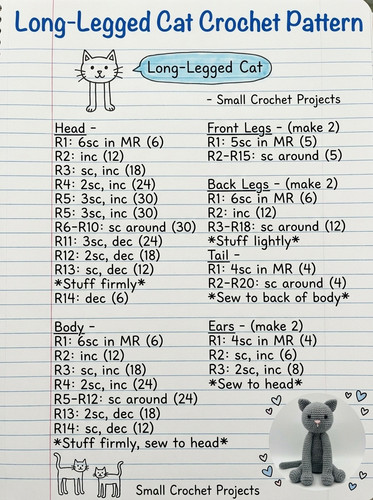 Long-Legged Cat Crochet Pattern
Long-Legged Cat
- Small Crochet Projects
Head -
R1: 6sc in MR (6)
R2: inc (12)
R3: sc, inc (18)
R4: 2sc, inc (24)
R5: 3sc, inc (30)
R5: 3sc, inc (30)
R6-R10: sc around (30)
R11: 3sc, dec (24)
R12: 2sc, dec (18)
R13: sc, dec (12)
*Stuff firmly*
R14: dec (6)
Front Legs - (make 2)
R1: 5sc in MR (5)
R2-R15: sc around (5)
Back Legs - (make 2)
R1: 6sc in MR (6)
R2: inc (12)
R3-R18: sc around (12)
*Stuff lightly*
Tail -
R1: 4sc in MR (4)
R2-R20: sc around (4)
*Sew to back of body*
Body -
R1: 6sc in MR (6)
R2: inc (12)
R3: sc, inc (18)
R4: 2sc, inc (24)
R5-R12: sc around (24)
R13: 2sc, dec (18)
R14: sc, dec (12)
*Stuff firmly, sew to head*
Ears - (make 2)
R1: 4sc in MR (4)
R2: sc, inc (6)
R3: 2sc, inc (8)
*Sew to head*
Small Crochet Projects